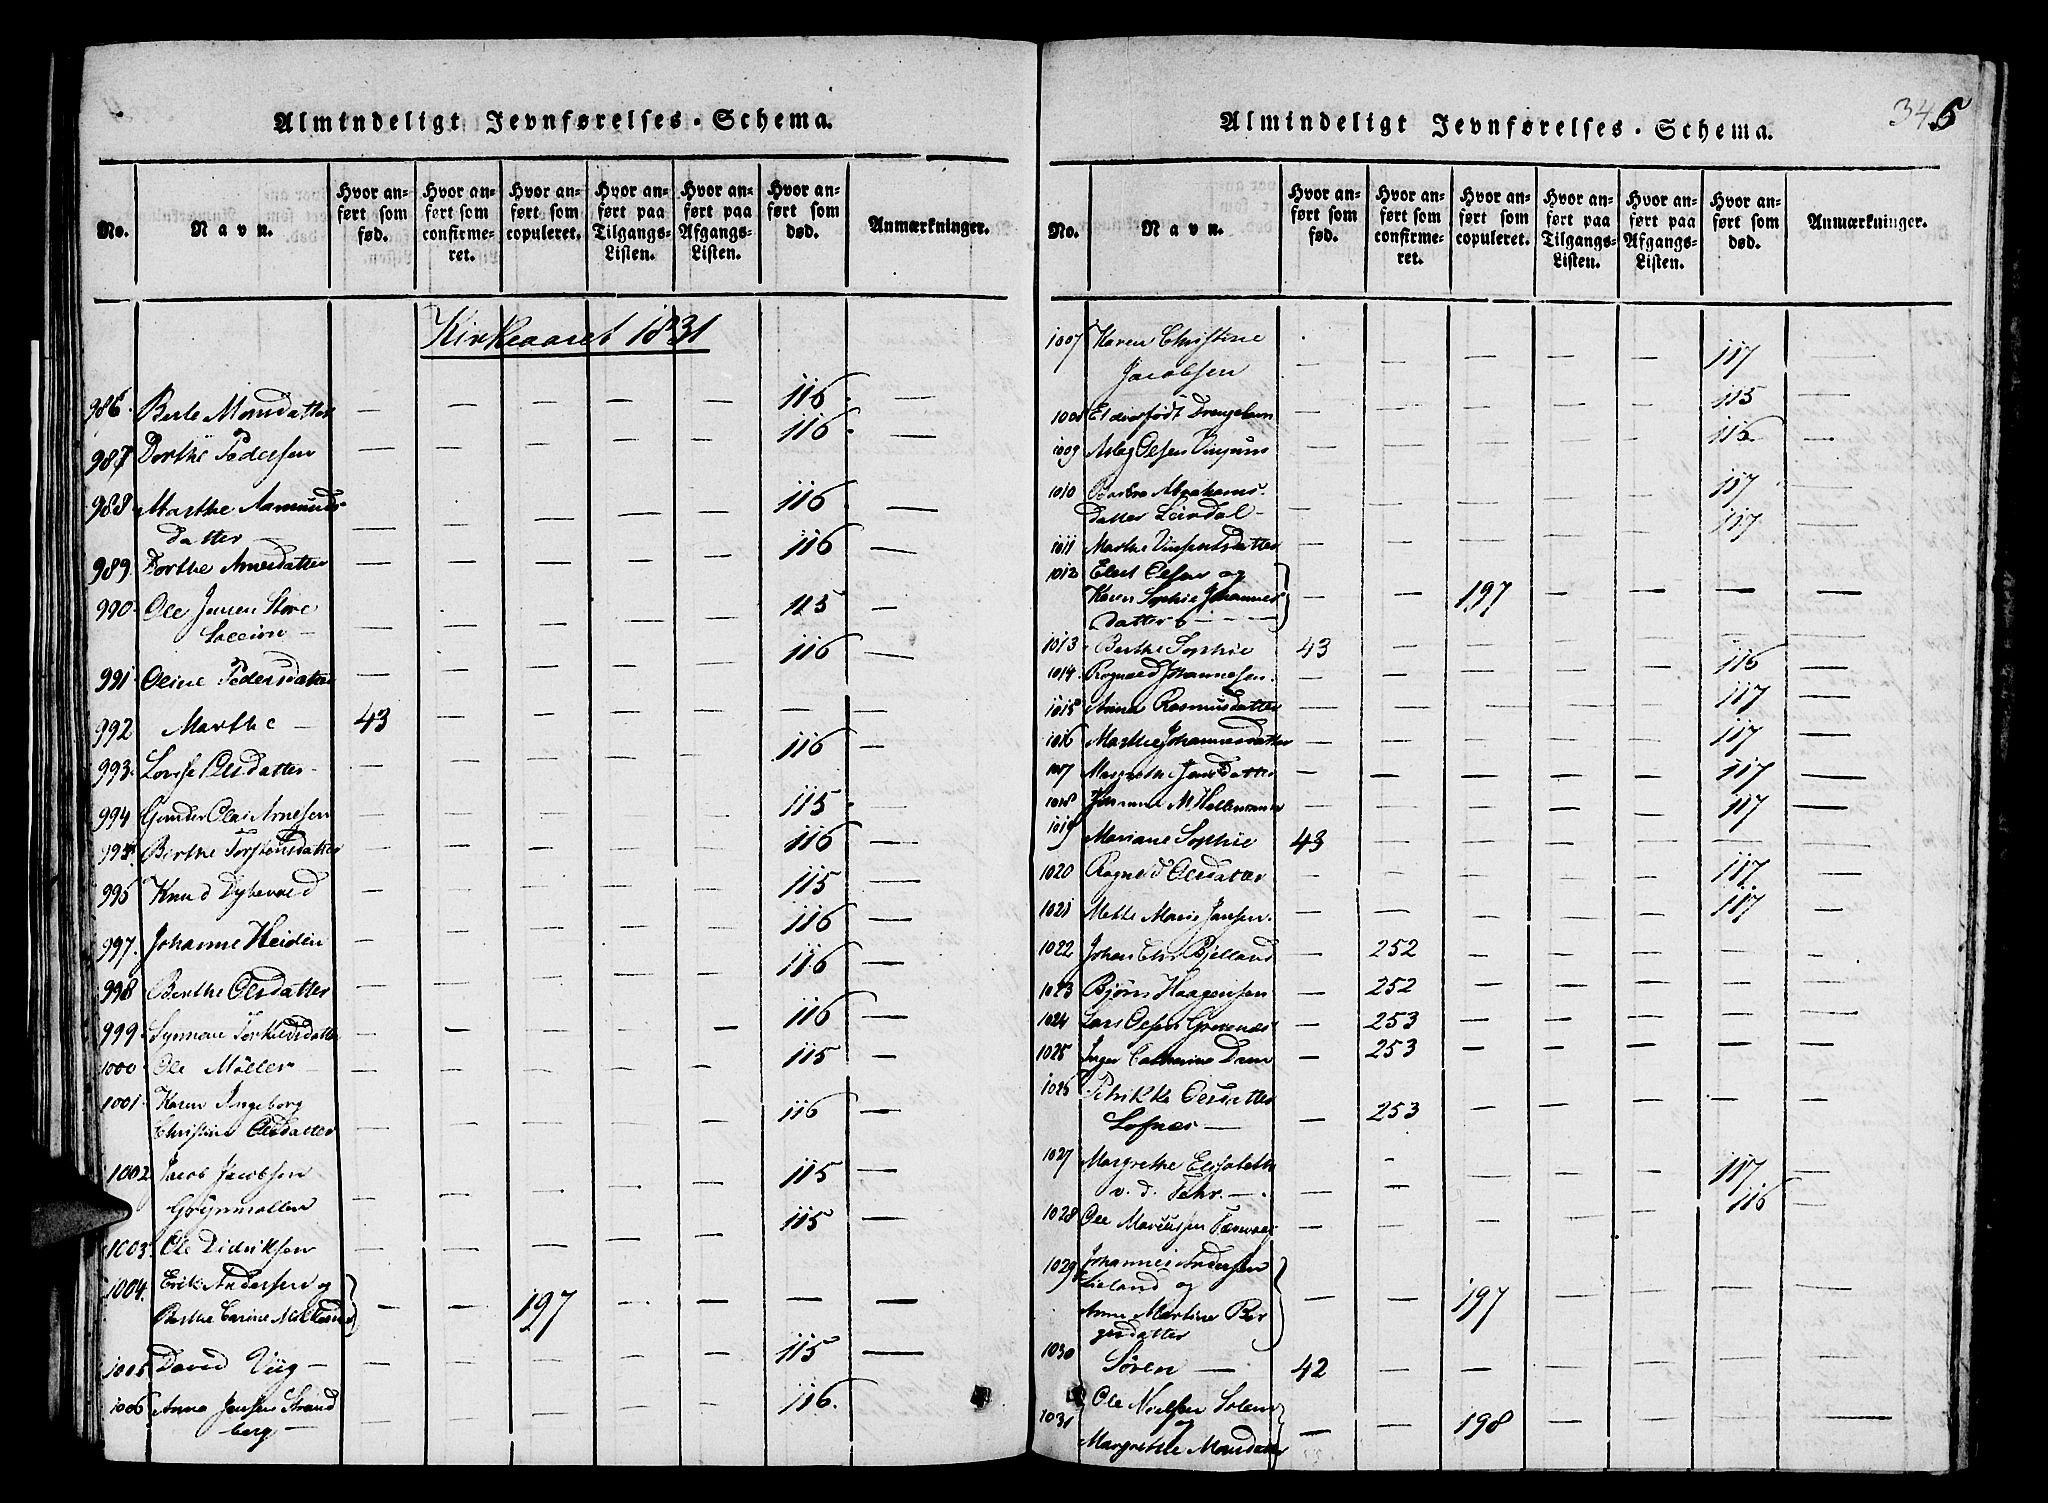 Almindeligt Jevnførelses-Schema.
No. Navn. Hvor anført som fød. Hvor anført som confirmeret. Hvor anført som copuleret. Hvor anført paa Tilgangs-Listen. Hvor anført paa Afgangs-Listen. Hvor anført som død. Anmærkninger.
Kirkeaaret 1831
986. Berte Monsdatter — — — — — 116. —
987 Dorthe Pedersen — — — — — 116. —
988. Marthe Aamunds-
datter — — — — — 116 —
989. Dorthe Arnesdatter — — — — — 116 —
990. Ole Jensen Store
— — — — — 115 —
991. Oline Pedersdatter — — — — — 116 —
992 Marthe — 43 — — — — — —
993. Lovise Olesdatter — — — — — 116 —
994 Gunder Olai Arnesen — — — — — 115 —
995. Berthe Torstensdatter — — — — — 116 —
995 Knud Dybevold — — — — — 115 —
997. Johanne Heiden — — — — — 116 —
998 Berthe Olesdatter — — — — — 116 —
999. Synnove Torkildsdatter — — — — — 116 —
1000. Ole Möller — — — — — — 115 —
1001. Karen Ingeborg
Christine Olesdatter — — — — — 116 —
1002 Jacob Jacobsen
— — — — — 115 —
1003. Ole Didriksen — — — — — 115 —
1004. Erik Andersen og
Berthe Carine — — 197 — — — —
1005 David Viig — — — — — — 115 —
1006 Anna Jensen Strand
berg — — — — — 116.
Almindeligt Jevnførelses-Schema. 345
No. Navn. Hvor anført som fød. Hvor anført som confirmeret. Hvor anført som copuleret. Hvor anført paa Tilgangs-Listen. Hvor anført paa Afgangs-Listen. Hvor anført som død. Anmærkninger.
1007 Karen Christine
Jacobsen — — — — — 117 —
1008 Et dødfødt Drengebarn — — — — — 115 —
1009 Aslag Olsen — — — — — 116 —
1010 Barbra Abrahams-
datter Leirdal — — — — — 117 —
1011 Marthe Vinsentsdatter — — — — — 117 —
1012 Elert Olsen og
Karen Sophie Johannes
datter — — — 197 — — — —
1013 Berthe Sophie 43 — — — — — —
1014. Rognald Johannesen. — — — — — 116 —
1015 Anna Rasmusdatter — — — — — 117 —
1016 Marthe Johannesdatter — — — — — 117 —
1017 Margrethe Jensdatter — — — — — 117 —
1018 — — — — — 117 —
1019 Mariane Sophie 43 — — — — — —
1020 Ragnild Olesdatter — — — — — 117 —
1021 Mette Marie Jansen. — — — — — 117 —
1022 Johan Chr Bjelland — 252 — — — — —
1023 Bjørn Haagensen — 252 — — — — —
1024 Lars Olsen — 253 — — — — —
1025 Inger Catharine Dam — 253 — — — — —
1026 Petrikke Olesdatter
Lofnæs — — 253 — — — — —
1027 Margrethe Elisabeth
v. d. Fehr. — — — — — — 117 —
1028 Ole — — — — — 116 —
1029 Johannes Andersen
Lieland og
Anne Martine Ber
gesdatter — — 197 — — — —
1030 Søren — 42 — — — — — —
1031 Ole Nielsen
og
Margrethe Monsdatter — — 198 — — — —